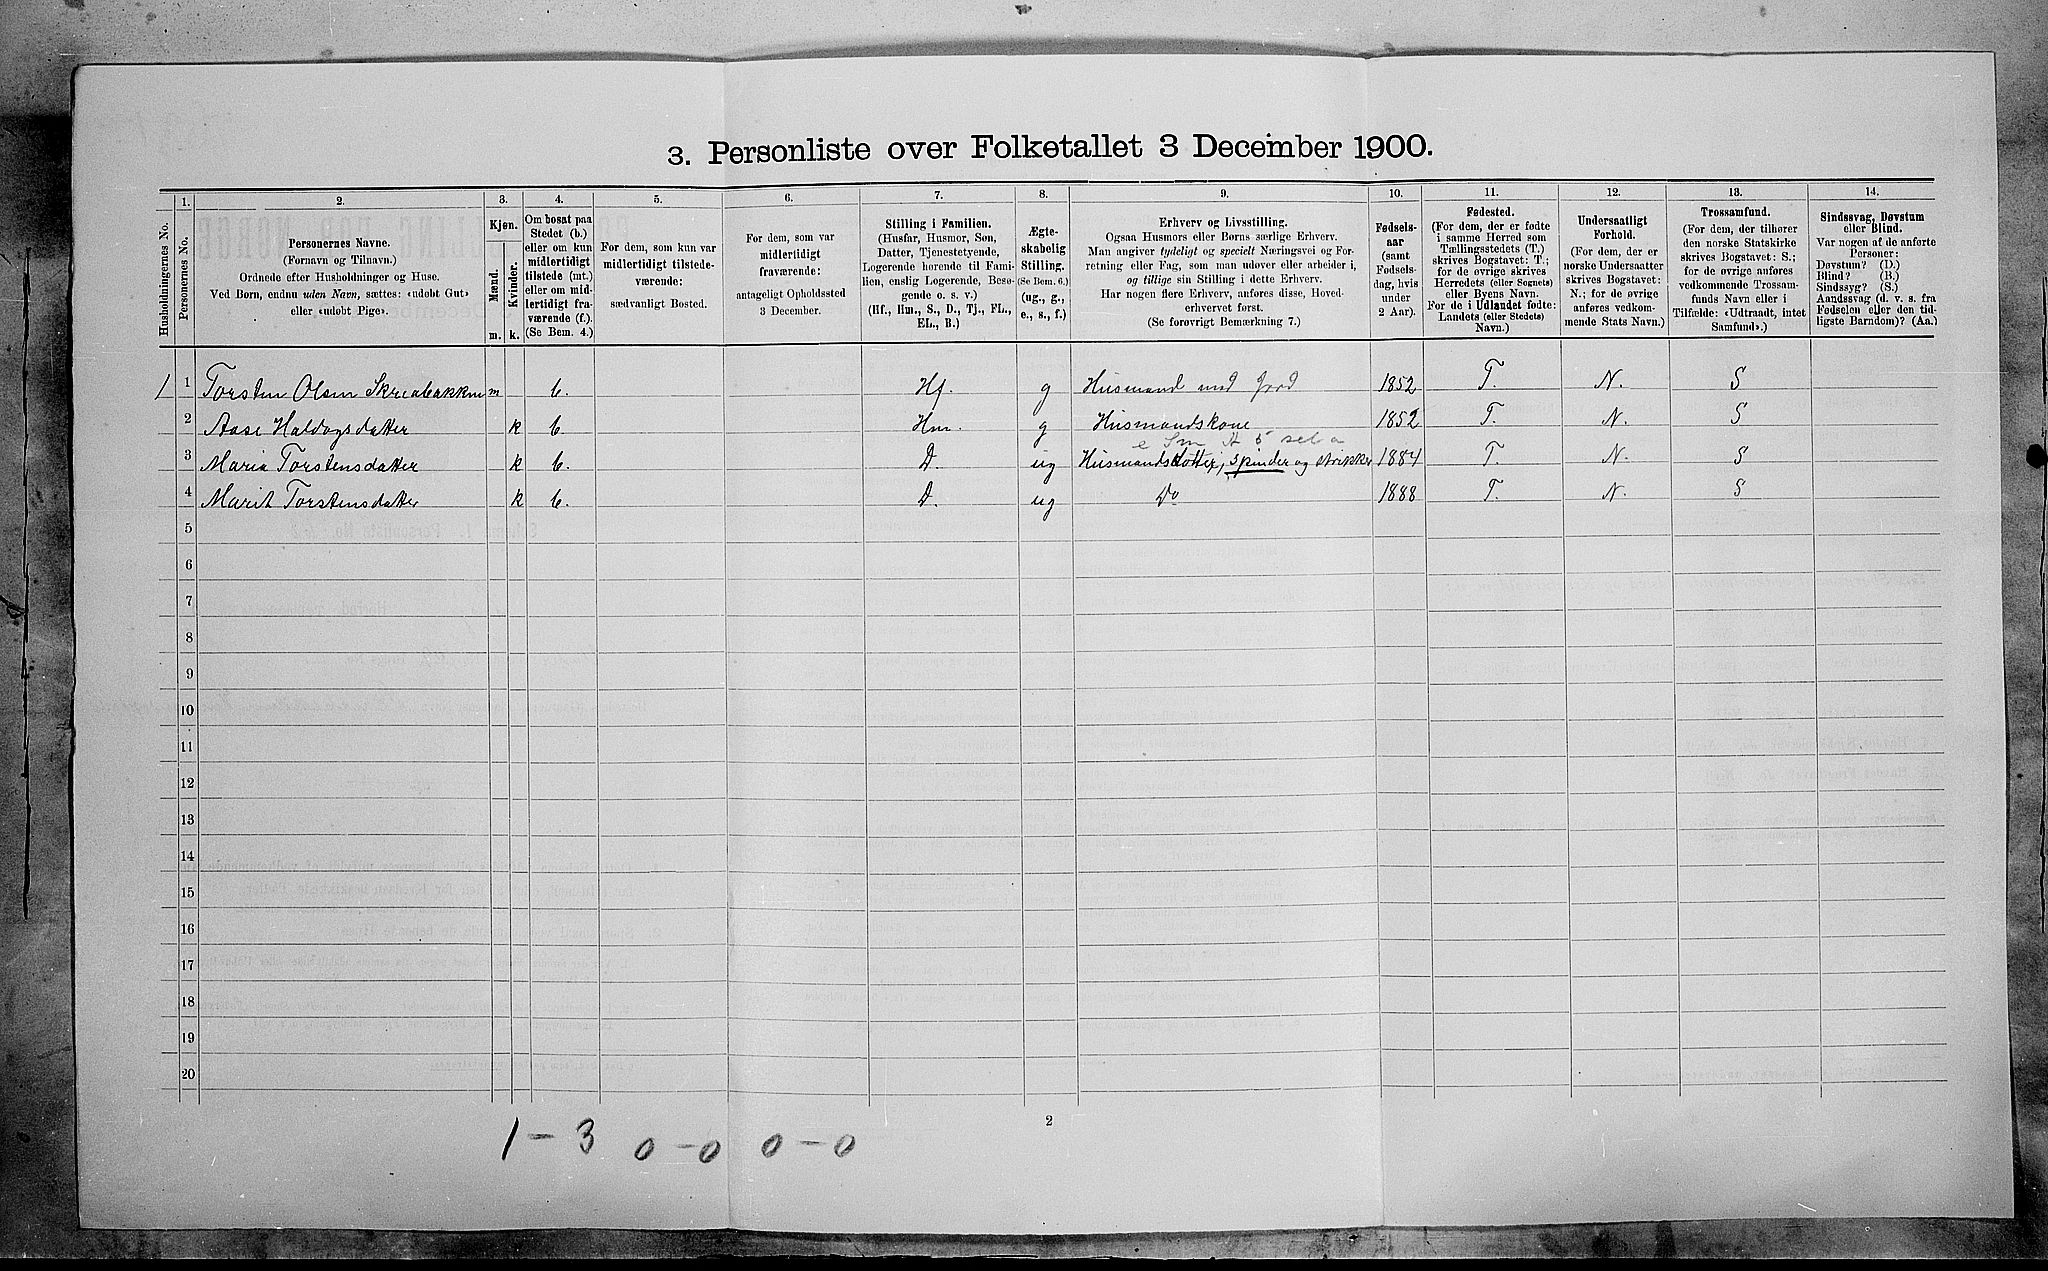 3. Personliste over Folketallet 3 December 1900.
1. 2. 3. 4. 5. 6. 7. 8. 9. 10. 11. 12. 13. 14.
Husholdningernes No.
Personernes No.
Personernes Navne.
(Fornavn og Tilnavn.)
Ordnede efter Husholdninger og Huse.
Ved Børn, endnu uden Navn, sættes: «udøbt Gut»
eller «udøbt Pige».
Kjøn.
Mænd.
Kvinder.
m. k.
Om bosat paa
Stedet (b.)
eller om kun
midlertidigt
tilstede (mt.)
eller om mid-
lertidigt fra-
værende (f.).
(Se Bem. 4.)
For dem, som kun var
midlertidigt tilstede-
værende:
sædvanligt Bosted.
For dem, som var
midlertidigt
fraværende:
antageligt Opholdssted
3 December.
Stilling i Familien.
(Husfar, Husmor, Søn,
Datter, Tjenestetyende,
Logerende hørende til Fami-
lien, enslig Logerende, Besø-
gende o. s. v.)
(Hf., Hm., S., D., Tj., FL.,
EL., B.)
Ægte-
skabelig
Stilling.
(Se Bem. 6.)
(ug., g.,
e., s., f.)
Erhverv og Livsstilling.
Ogsaa Husmors eller Børns særlige Erhverv.
Man angiver tydeligt og specielt Næringsvei og For-
retning eller Fag, som man udøver eller arbeider i,
og tillige sin Stilling i dette Erhverv.
Har nogen flere Erhverv, anføres disse, Hoved-
erhvervet først.
(Se forøvrigt Bemærkning 7.)
Fødsels-
aar
(samt
Fødsels-
dag, hvis
under
2 Aar).
Fødested.
(For dem, der er fødte
i samme Herred som
Tællingsstedets (T.)
skrives Bogstavet: T.;
for de øvrige skrives
Herredets (eller Sognets)
eller Byens Navn.
For de i Udlandet fødte:
Landets (eller Stedets)
Navn.)
Undersaatligt
Forhold.
(For dem, der er
norske Undersaatter
skrives Bogstavet:
N.; for de øvrige
anføres vedkom-
mende Stats Navn.)
Trossamfund.
(For dem, der tilhører
den norske Statskirke
skrives Bogstavet: S.;
for de øvrige anføres
vedkommende Trossam-
funds Navn eller i
Tilfælde: «Udtraadt, intet
Samfund».)
Sindssvag, Døvstum
eller Blind.
Var nogen af de anførte
Personer:
Døvstum? (D.)
Blind? (B.)
Sindssyg? (S.)
Aandssvag (d. v. s. fra
Fødselen eller den tid-
ligste Barndom)? (Aa.)
1 1 Torsten Olsen Skreabakken m b. Hf. g Husmand med Jord 1852 T. N. S
2 Aase Haldogsdatter k b. Hm. g Husmandskone 1852 T. N. S
3 Maria Torstensdatter k b. D. ug Husmandsdotter, spinder og strikker 1884 T. N. S
4 Marit Torstensdatter k b. D. ug Do 1888 T. N. S
5
6
7
8
9
10
11
12
13
14
15
16
17
18
19
20
2
1 - 3 0 - 0 0 - 0